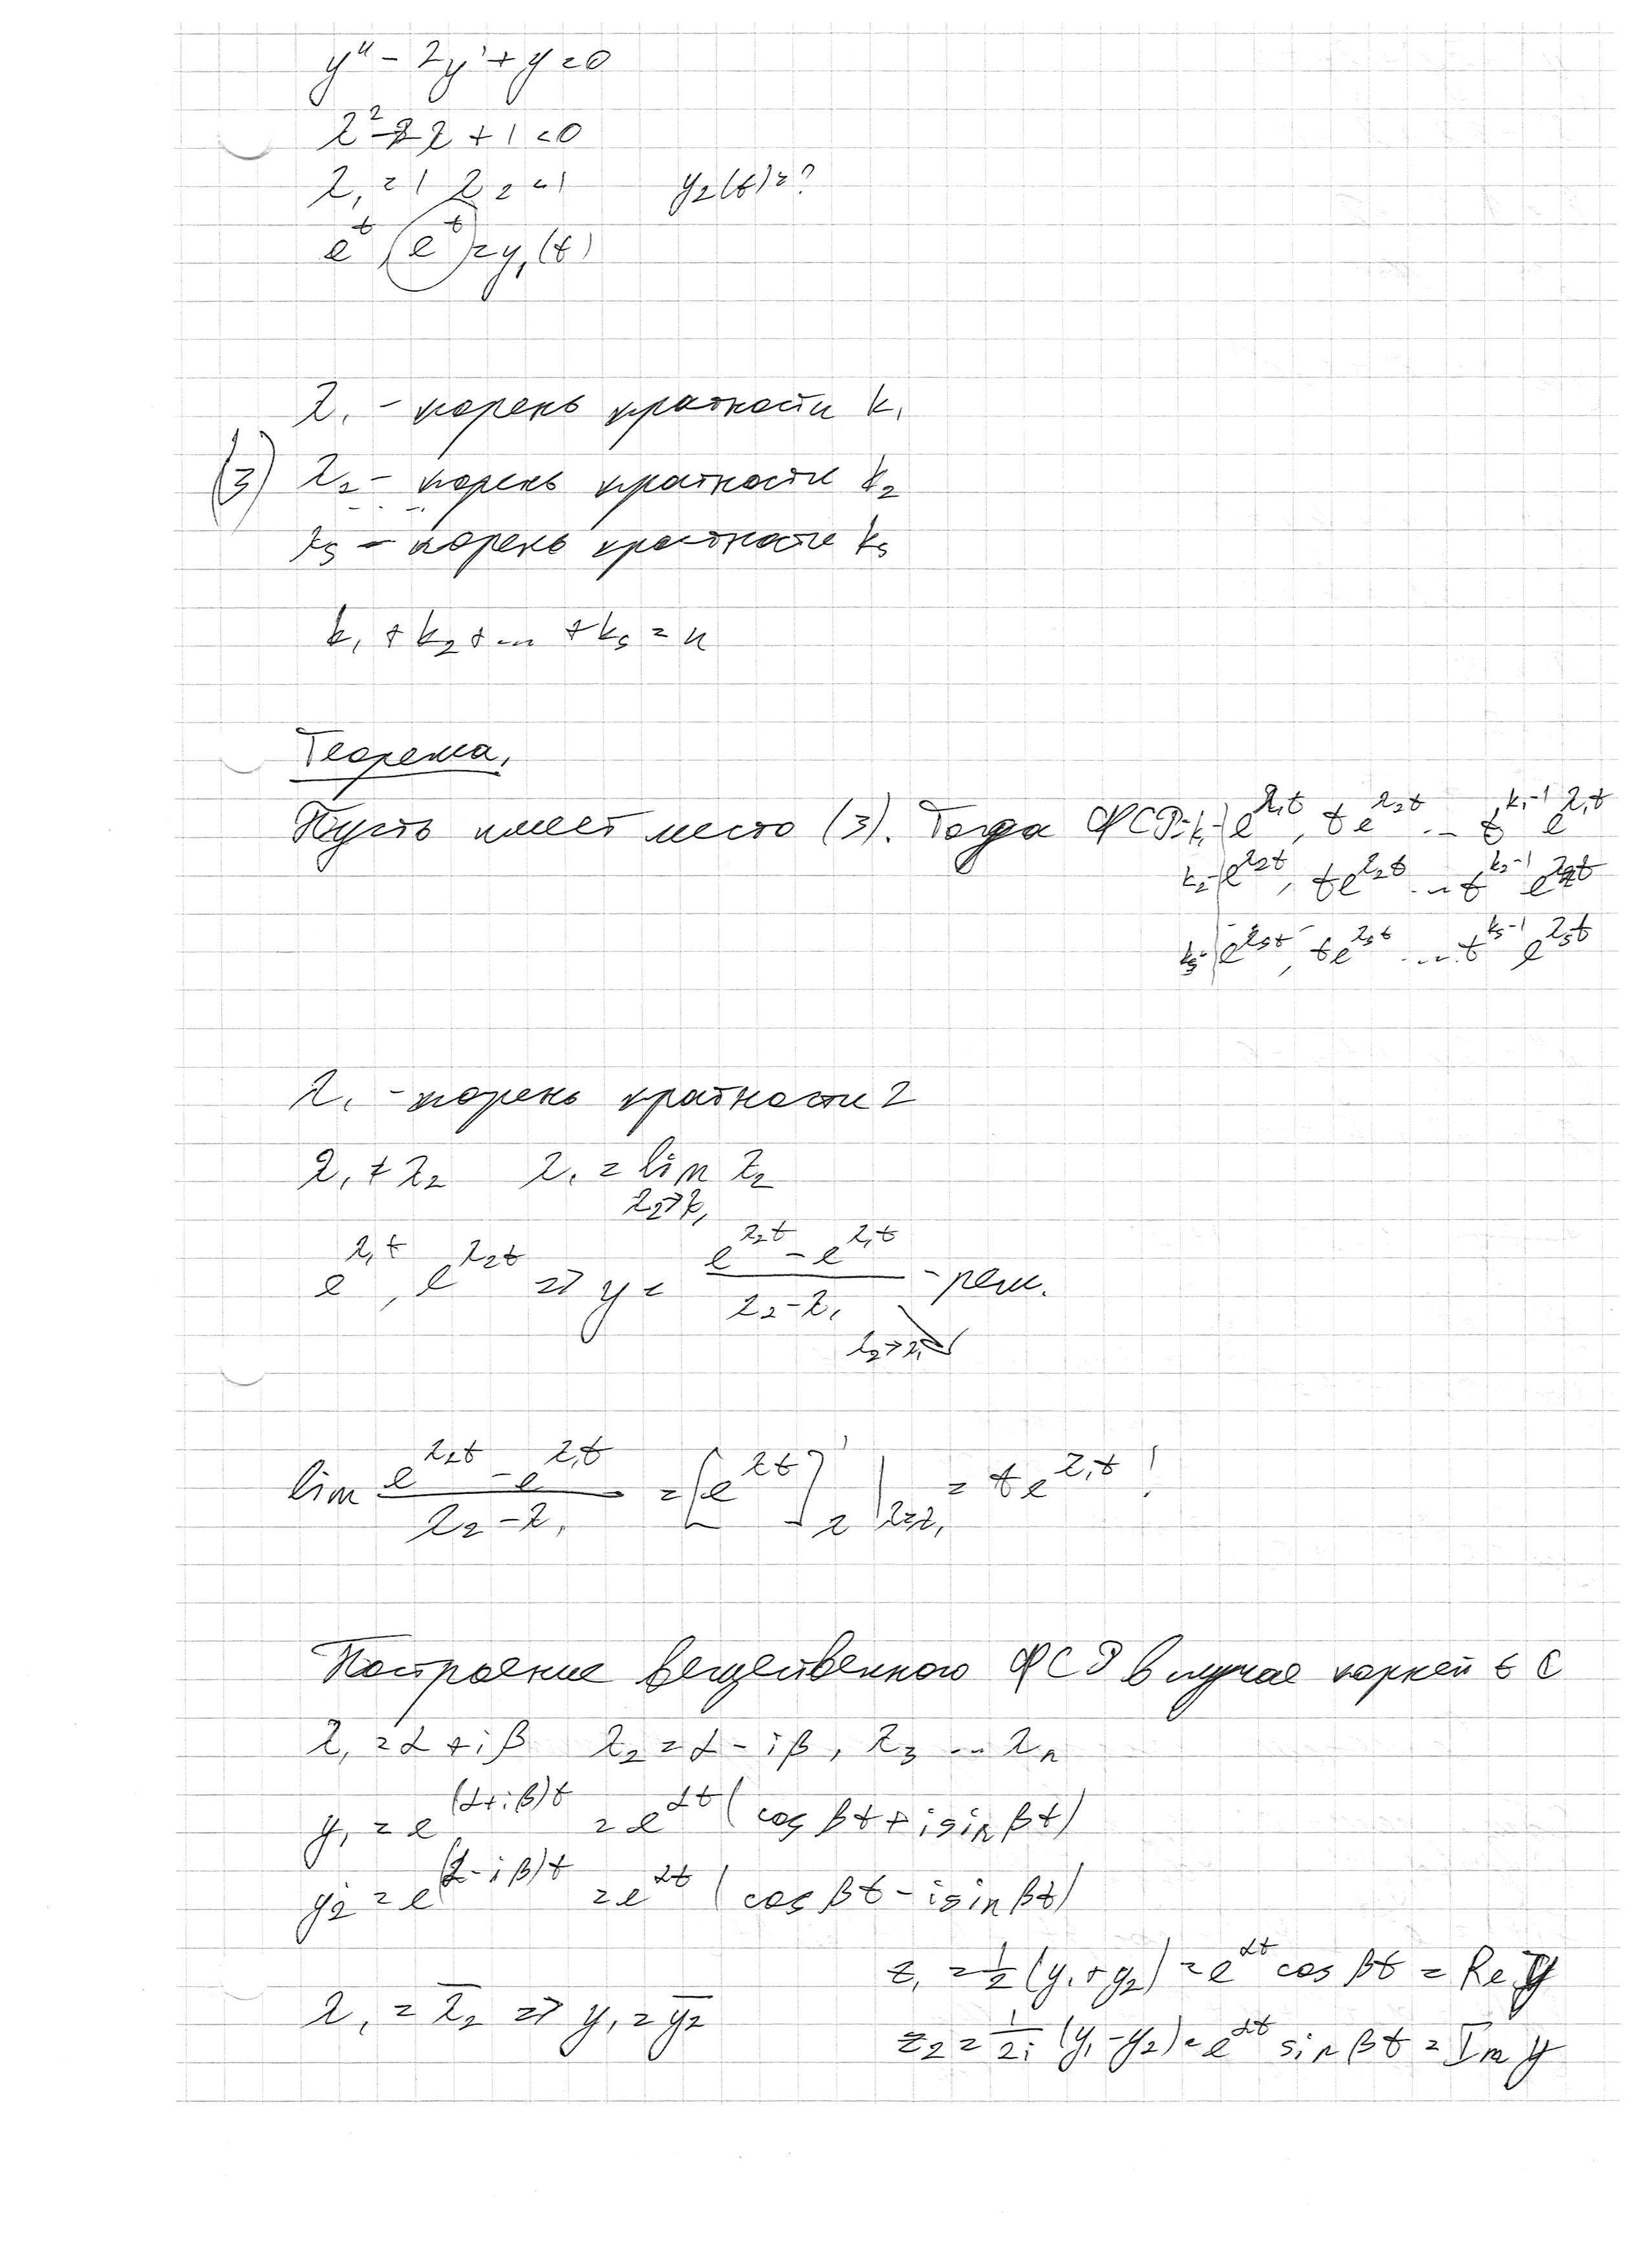 y'' - 2y' + y = 0
λ² - 2λ + 1 = 0
λ₁ = 1 λ₂ = 1 y₂(t) = ?
eᵗ, (eᵗ) = y₁(t)
λ₁ - корень кратности k₁
(3) λ₂ - корень кратности k₂
λₛ - корень кратности kₛ
k₁ + k₂ + ... + kₛ = n
Теорема.
Пусть имеет место (3). Тогда ФСР: k₁-| e^{λ₁t}, te^{λ₁t} ... t^{k₁-1} e^{λ₁t}
k₂-| e^{λ₂t}, te^{λ₂t} ... t^{k₂-1} e^{λ₂t}
kₛ-| e^{λₛt}, te^{λₛt} ... t^{kₛ-1} e^{λₛt}
λ₁ - корень кратности 2
λ₁ ≠ λ₂ λ₁ = lim_{λ₂→λ₁} λ₂
e^{λ₁t}, e^{λ₂t} => y = (e^{λ₂t} - e^{λ₁t})/(λ₂ - λ₁) - реш.
λ₂→λ₁
lim (e^{λ₂t} - e^{λ₁t})/(λ₂ - λ₁) = [e^{λt}]'_λ |_{λ=λ₁} = te^{λ₁t} !
Построение вещественного ФСР в случае корней ∈ C
λ₁ = α + iβ λ₂ = α - iβ, λ₃ ... λₙ
y₁ = e^{(α+iβ)t} = e^{αt} (cos βt + i sin βt)
y₂ = e^{(α-iβ)t} = e^{αt} (cos βt - i sin βt)
z₁ = ½(y₁ + y₂) = e^{αt} cos βt = Re y
λ₁ = λ̅₂ => y₁ = y̅₂
z₂ = 1/2i (y₁ - y₂) = e^{αt} sin βt = Im y